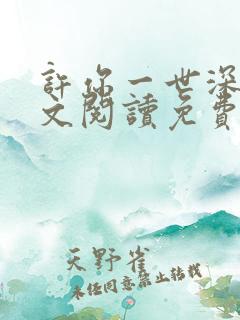 許你一世深
文閱讀免費
天野雀
未經同意禁止轉載